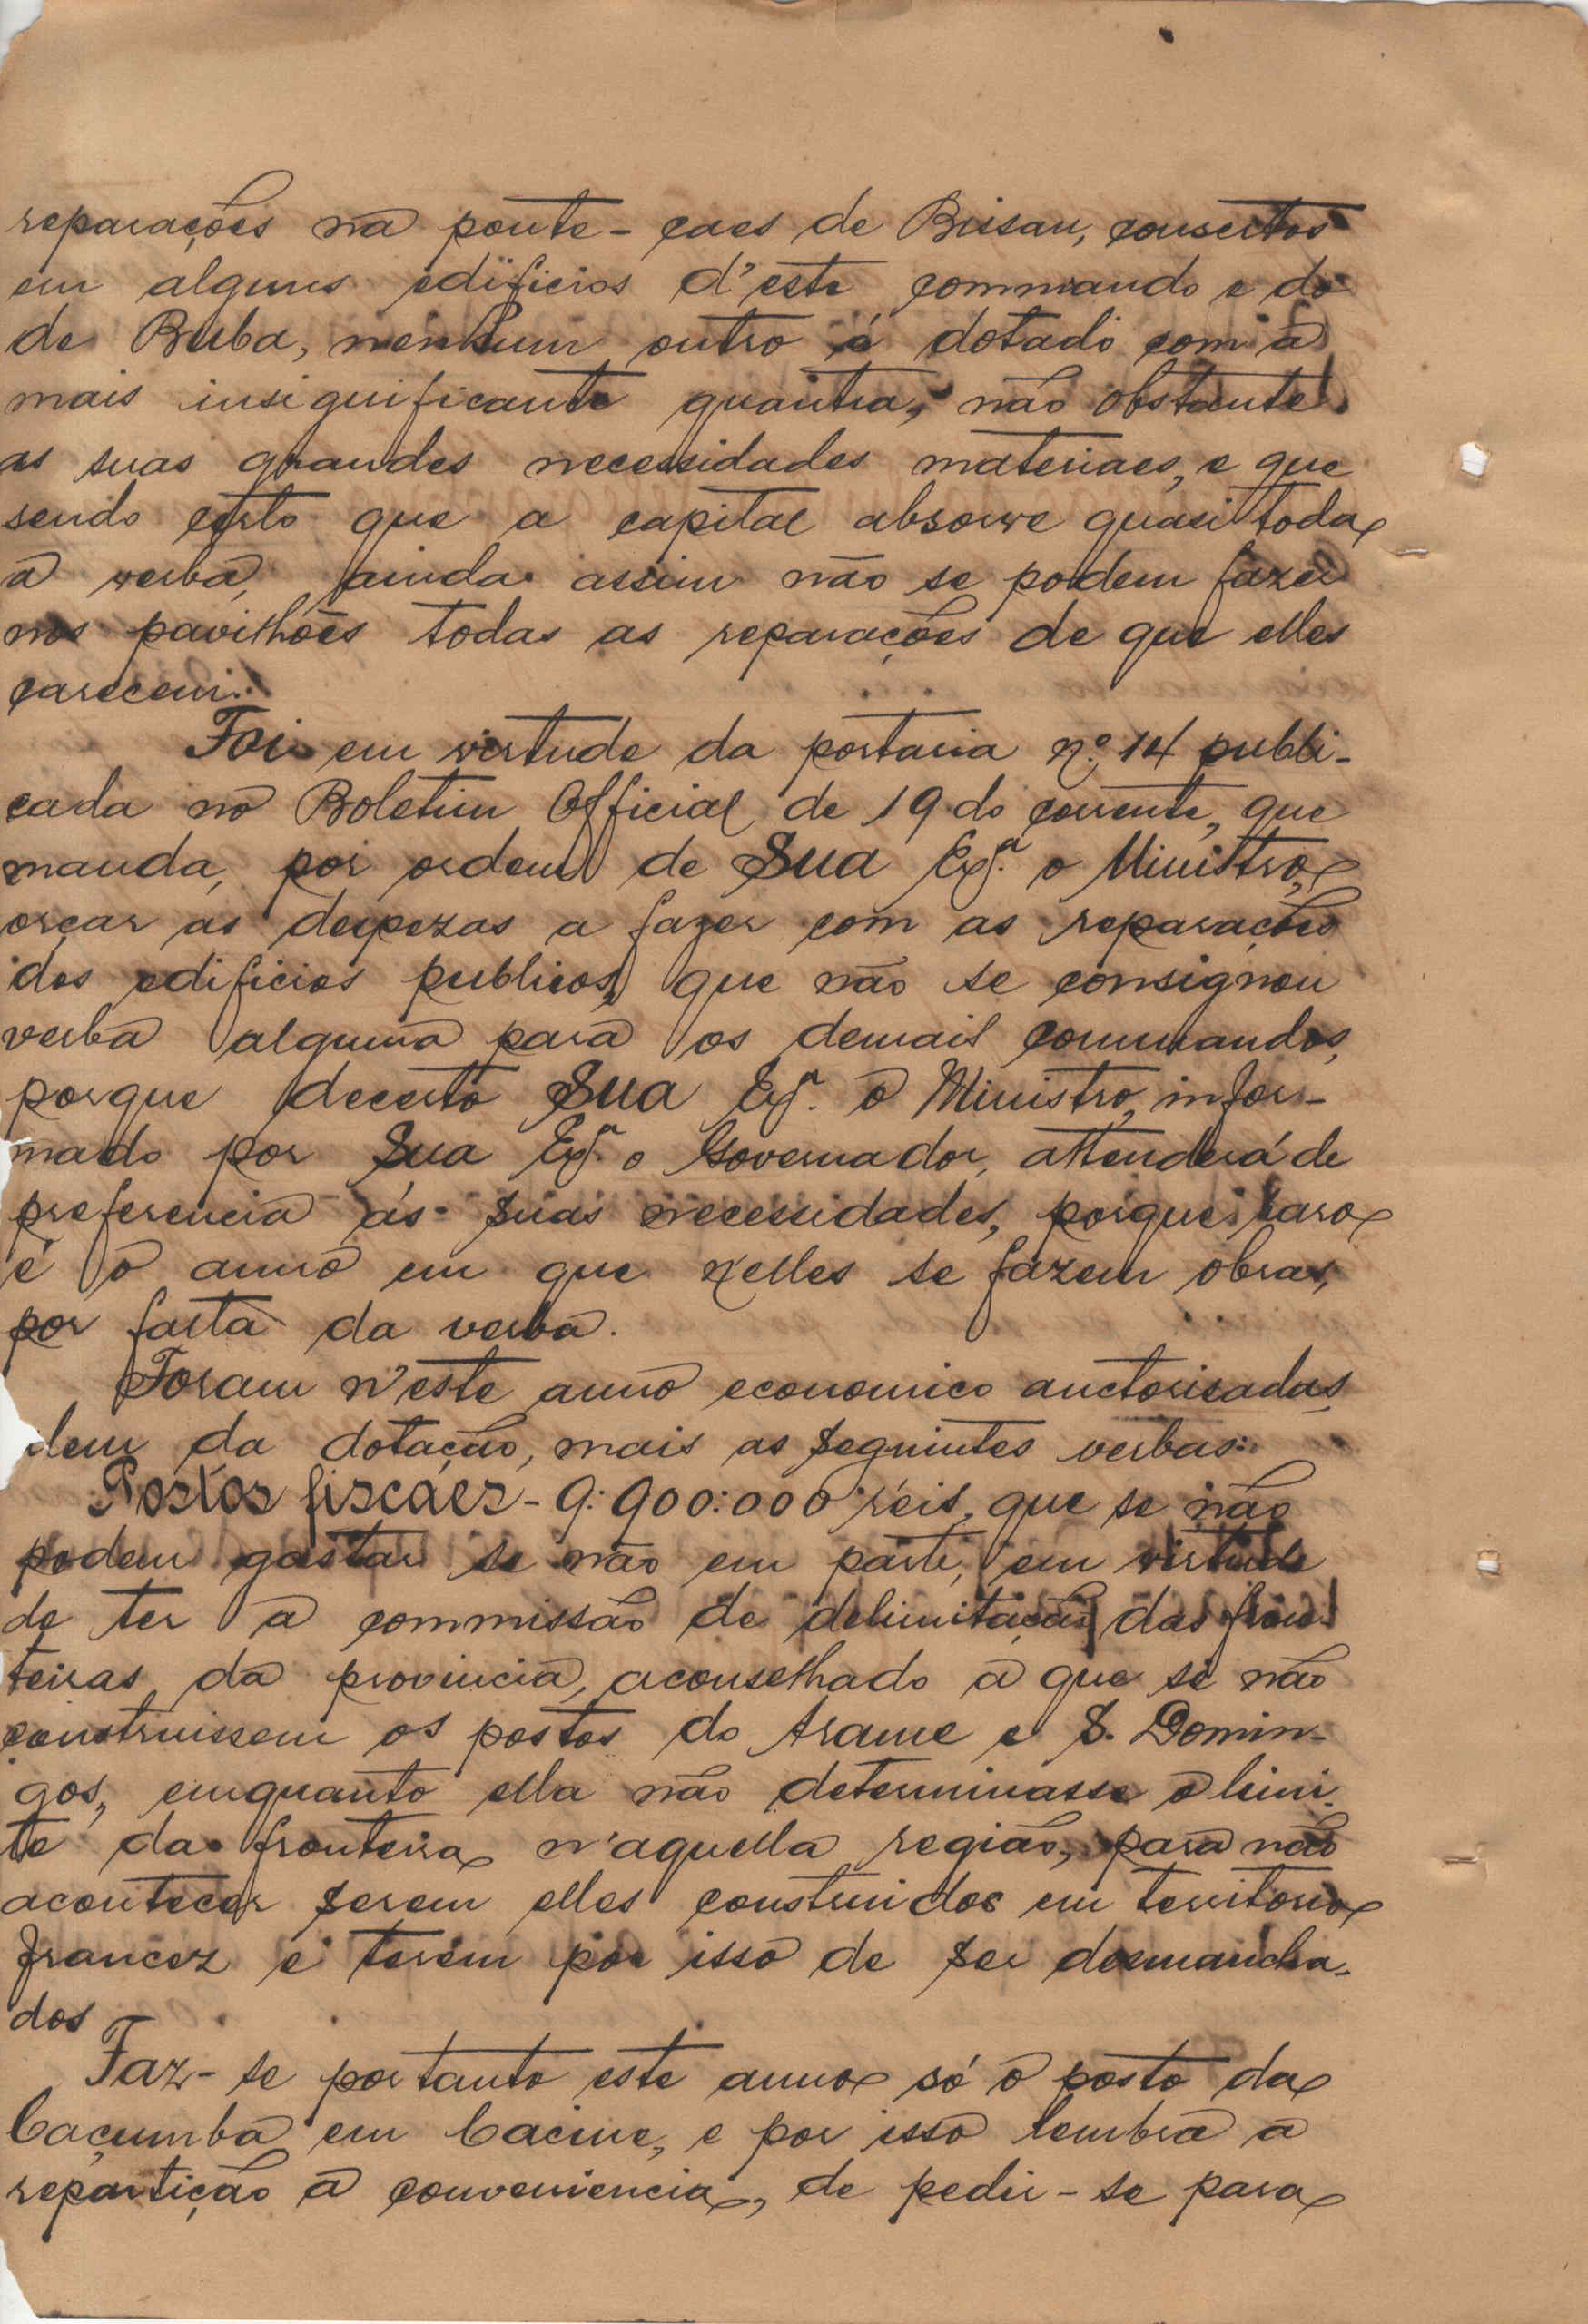 reparações na ponte-caes de Bissau, concertos
em alguns edificios d'este commando e do
de Buba, nenhum outro é dotado com a
mais insignificante quantia, não obstante
as suas grandes necessidades materiaes, e que
sendo certo que a capital absorve quasi toda
a verba, ainda assim não se podem fazer
nos pavilhões todas as reparações de que elles
carecem.
Foi em virtude da portaria n.º 14 publi-
cada no Boletim Official de 19 do corrente, que
manda, por ordem de Sua Exª. o Ministro,
orçar as despezas a fazer com as reparações
dos edificios publicos, que não se consignou
verba alguma para os demais commandos,
porque decerto Sua Exª. o Ministro, infor-
mado por Sua Exª. o Governador, attenderá de
preferencia ás suas necessidades, porque raro
é o anno em que n'elles se fazem obras,
por falta da verba.
Foram n'este anno economico auctorisadas,
lem da dotação, mais as seguintes verbas:
Postos fiscaes - 9:900:000 réis, que se não
podem gastar se não em parte, em virtude
de ter a commissão de delimitação das fron-
teiras da provincia, aconselhado a que se não
construissem os postos do Arame e S. Domin-
gos, emquanto ella não determinasse o limi-
te da fronteira n'aquella região, para não
acontecer serem elles construidos em territorio
francez e terem por isso de ser desmancha-
dos
Faz-se portanto este anno só o posto da
Caçumba em Cacine, e por isso lembra a
repartição a conveniencia, de pedir-se para